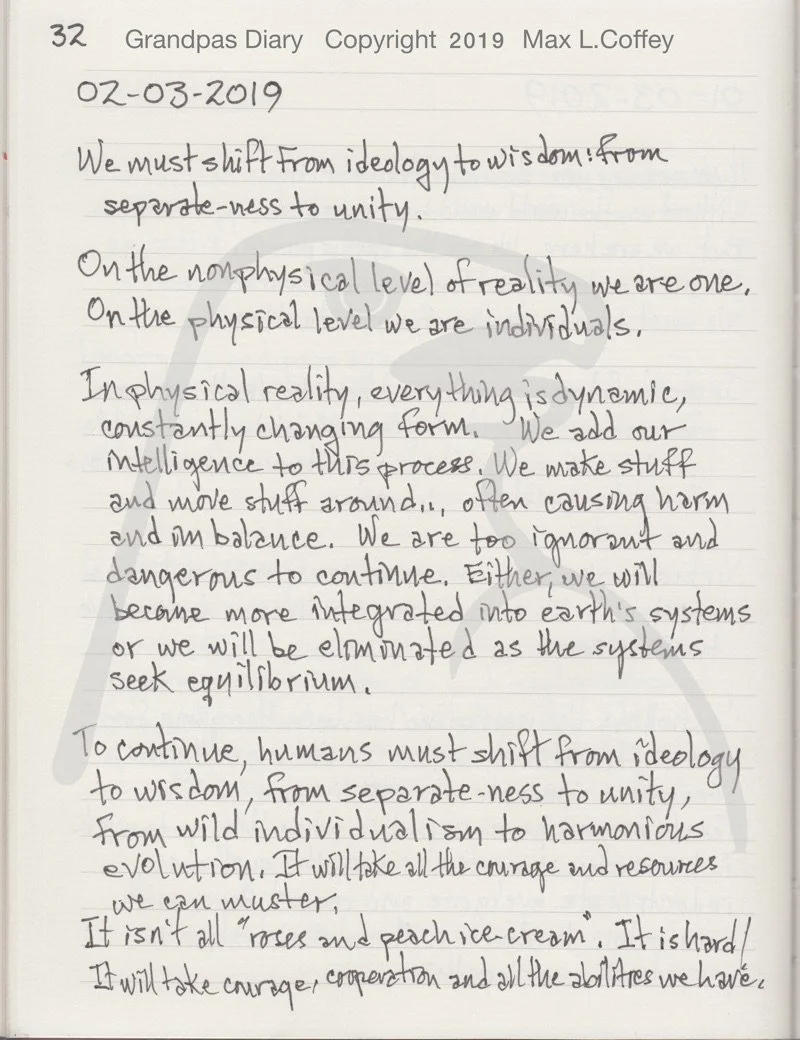 32 Grandpas Diary Copyright 2019 Max L.Coffey
02-03-2019
We must shift from ideology to wisdom: from
separate-ness to unity.
On the nonphysical level of reality we are one.
On the physical level we are individuals.
In physical reality, everything is dynamic,
constantly changing form. We add our
intelligence to this process. We make stuff
and move stuff around..., often causing harm
and imbalance. We are too ignorant and
dangerous to continue. Either, we will
become more integrated into earth's systems
or we will be eliminated as the systems
seek equilibrium.
To continue, humans must shift from ideology
to wisdom, from separate-ness to unity,
from wild individualism to harmonious
evolution. It will take all the courage and resources
we can muster.
It isn't all "roses and peach ice-cream". It is hard!
It will take courage, cooperation and all the abilities we have.